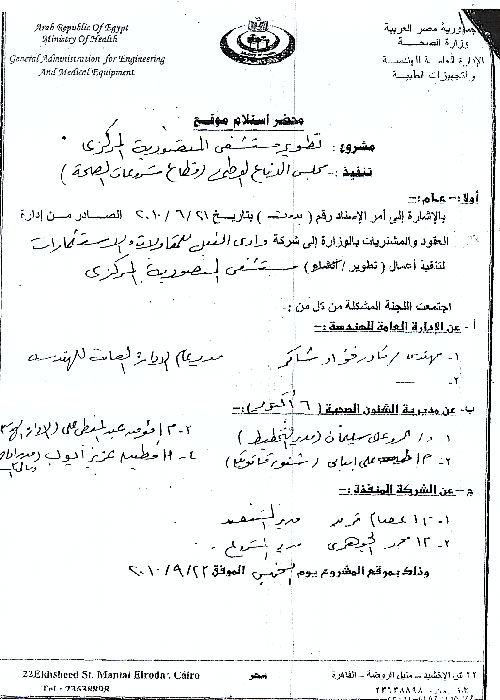 Arab Republic Of Egypt
Ministry Of Health
General Administration for Engineering
And Medical Equipment
جمهورية مصر العربية
وزارة الصحة
الإدارة العامة للهندسة
والتجهيزات الطبية
محضر استلام موقع
مشروع : تطوير مستشفى المنصورية المركزى
تنفيذ :- مجلس الدفاع الوطنى (قطاع مشروعات الصحة)
أولا :- عام :-
بالإشارة إلى أمر الإسناد رقم ( بدون ) بتاريخ ٢٠١٠/٦/٢١ الصادر من إدارة
العقود والمشتريات بالوزارة إلى شركة وادى النيل للمقاولات والاستثمارات
لتنفيذ أعمال ( تطوير / إنشاء ) مستشفى المنصورية المركزى
اجتمعت اللجنة المشكلة من كل من :
أ - عن الإدارة العامة للهندسة :-
١- مهندس / شاكر مدير عام الإدارة العامة للهندسة
٢-
ب- عن مديرية الشئون الصحية ( ٦ أكتوبر ) :-
١- د / سليمان (مدير التخطيط)
٢- م / على (شئون قانونية)
٣- م /
٤- م / عزيز أيوب
جـ - عن الشركة المنفذة :-
١- م / عصام مدير التنفيذ
٢- م / محمد الجوهرى مدير المشروع
وذلك بموقع المشروع يوم الخميس الموفق ٢٠١٠/٩/٢٣
22Ekhsheed St. Manial Elrodar, Cairo
Tel : 23638898
مصر
٢٢ ش الإخشيد - منيل الروضة - القاهرة